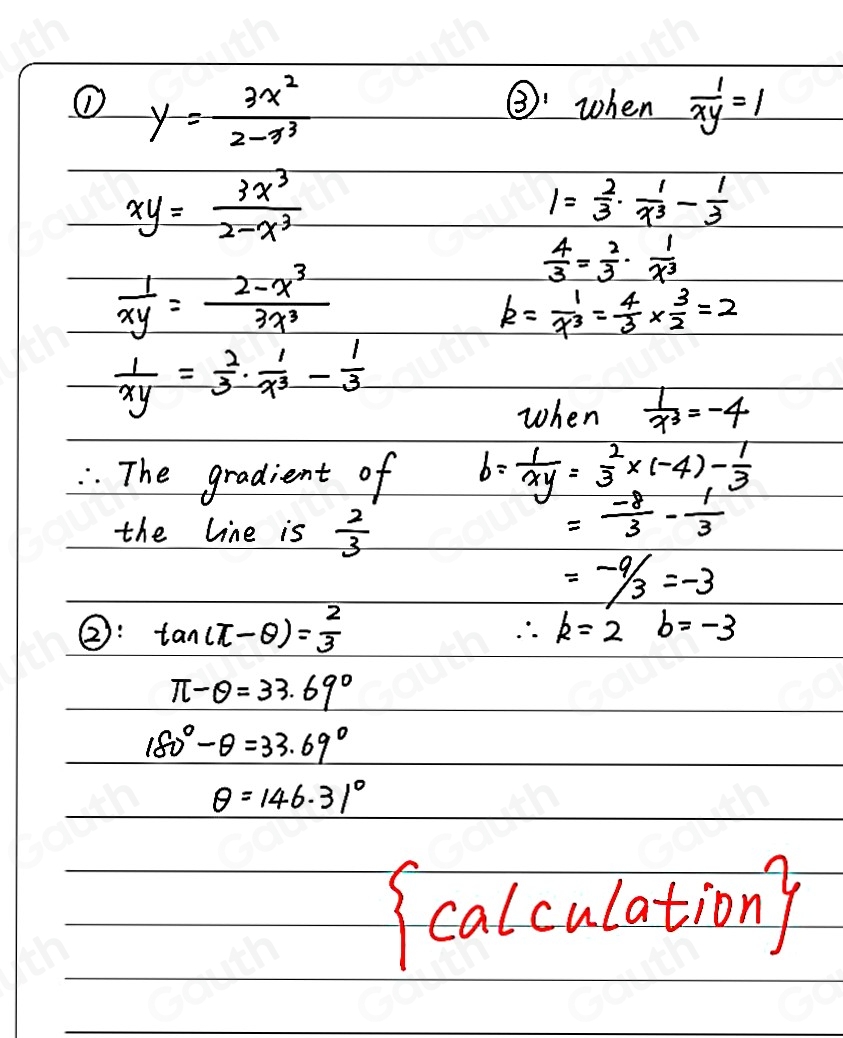 ① y = 3x²/(2-x³)
xy = 3x³/(2-x³)
1/xy = (2-x³)/3x³
1/xy = 2/3 · 1/x³ - 1/3
∴ The gradient of
the line is 2/3
②: tan(π-θ) = 2/3
π-θ = 33.69°
180°-θ = 33.69°
θ = 146.31°
③: when 1/xy = 1
1 = 2/3 · 1/x³ - 1/3
4/3 = 2/3 · 1/x³
k = 1/x³ = 4/3 × 3/2 = 2
when 1/x³ = -4
b = 1/xy = 2/3 × (-4) - 1/3
= -8/3 - 1/3
= -9/3 = -3
∴ k = 2 b = -3
{calculation}
Gauth